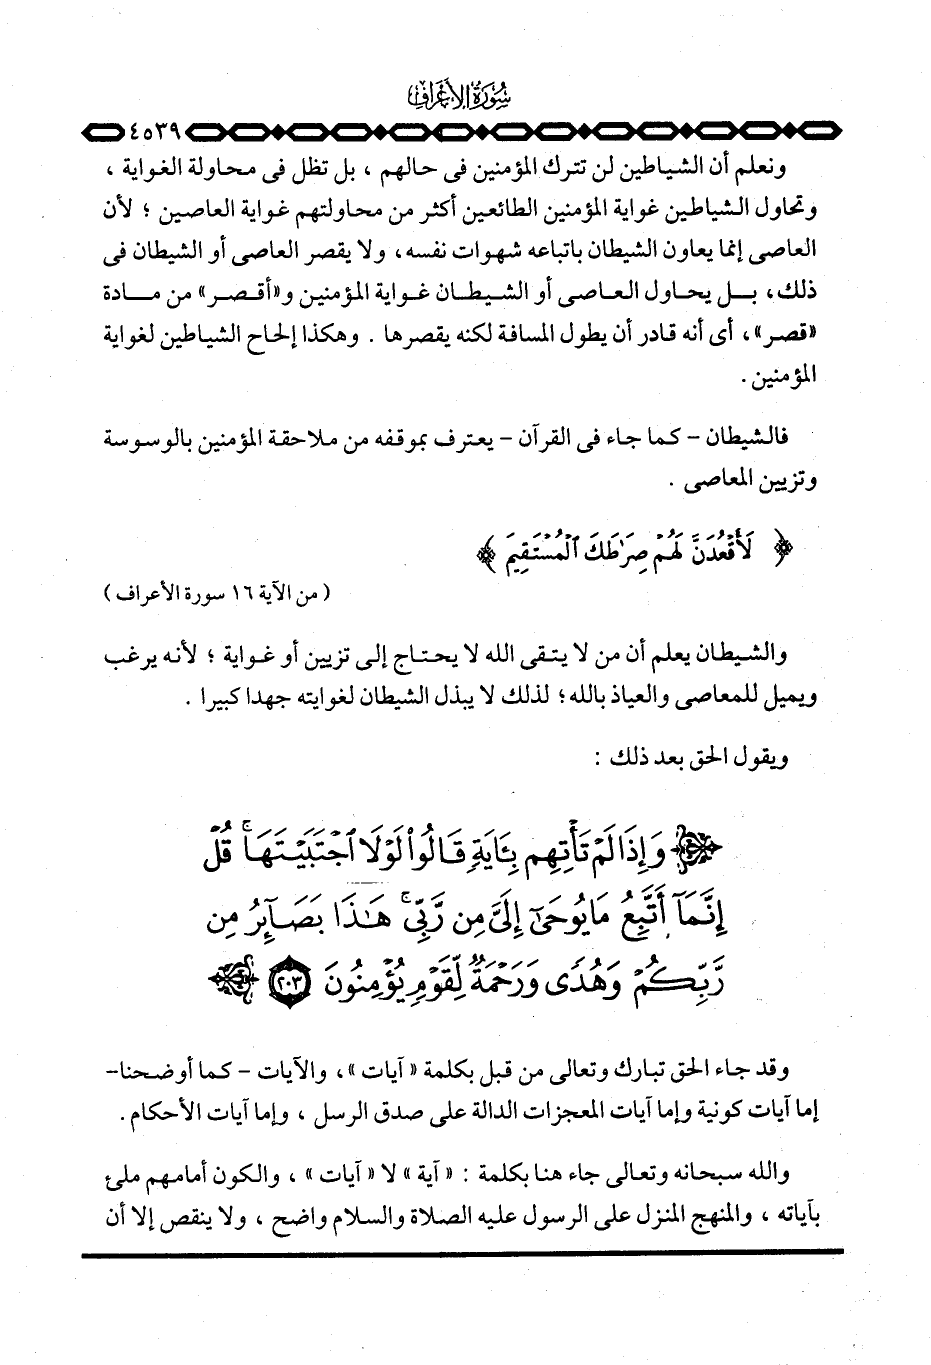 سُورَةُ الأَعْرَافِ
٤٥٣٩
ونعلم أن الشياطين لن تترك المؤمنين فى حالهم ، بل تظل فى محاولة الغواية ،
وتحاول الشياطين غواية المؤمنين الطائعين أكثر من محاولتهم غواية العاصين ؛ لأن
العاصى إنما يعاون الشيطان باتباعه شهوات نفسه، ولا يقصر العاصى أو الشيطان فى
ذلك، بل يحاول العاصى أو الشيطان غواية المؤمنين و«أقصر» من مادة
«قصر»، أى أنه قادر أن يطول المسافة لكنه يقصرها . وهكذا إلحاح الشياطين لغواية
المؤمنين.
فالشيطان - كما جاء فى القرآن - يعترف بموقفه من ملاحقة المؤمنين بالوسوسة
وتزيين المعاصى .
﴿ لَأَقْعُدَنَّ لَهُمْ صِرَٰطَكَ ٱلْمُسْتَقِيمَ ﴾
( من الآية ١٦ سورة الأعراف )
والشيطان يعلم أن من لا يتقى الله لا يحتاج إلى تزيين أو غواية ؛ لأنه يرغب
ويميل للمعاصى والعياذ بالله؛ لذلك لا يبذل الشيطان لغوايته جهدا كبيرا .
ويقول الحق بعد ذلك :
﴿ وَإِذَا لَمْ تَأْتِهِم بِـَٔايَةٍ قَالُوا۟ لَوْلَا ٱجْتَبَيْتَهَا ۚ قُلْ
إِنَّمَآ أَتَّبِعُ مَا يُوحَىٰٓ إِلَىَّ مِن رَّبِّى ۚ هَٰذَا بَصَآئِرُ مِن
رَّبِّكُمْ وَهُدًى وَرَحْمَةٌ لِّقَوْمٍ يُؤْمِنُونَ ٢٠٣ ﴾
وقد جاء الحق تبارك وتعالى من قبل بكلمة « آيات »، والآيات - كما أوضحنا-
إما آيات كونية وإما آيات المعجزات الدالة على صدق الرسل ، وإما آيات الأحكام.
والله سبحانه وتعالى جاء هنا بكلمة : « آية » لا « آيات » ، والكون أمامهم ملئ
بآياته ، والمنهج المنزل على الرسول عليه الصلاة والسلام واضح ، ولا ينقص إلا أن